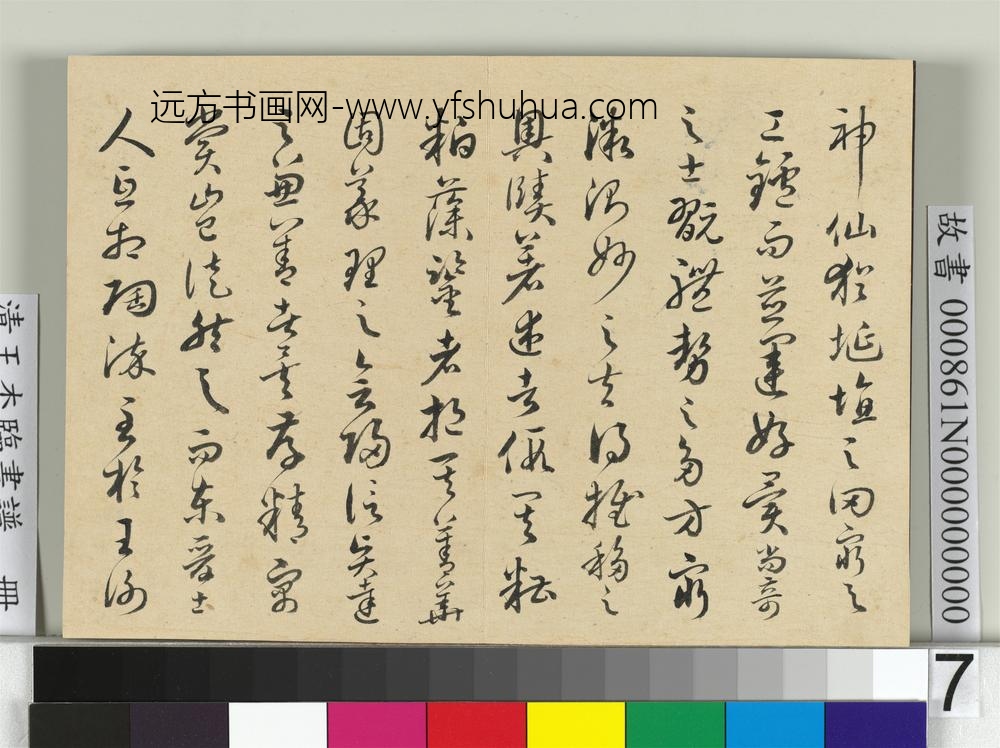 远方书画网-www.yfshuhua.com
神仙猶埏埴之罔窮與
工鑪而並運好異尚奇
之士翫體勢之多方窮
微測妙之夫得推移之
奧賾著述者假其糟
粕藻鑒者挹其菁華
固義理之會歸信賢達
之兼善者矣存精寓
賞豈徒然歟而東晉士
人互相陶淬至於王謝
故書 000861N000000000
7
清王杰臨書譜 冊